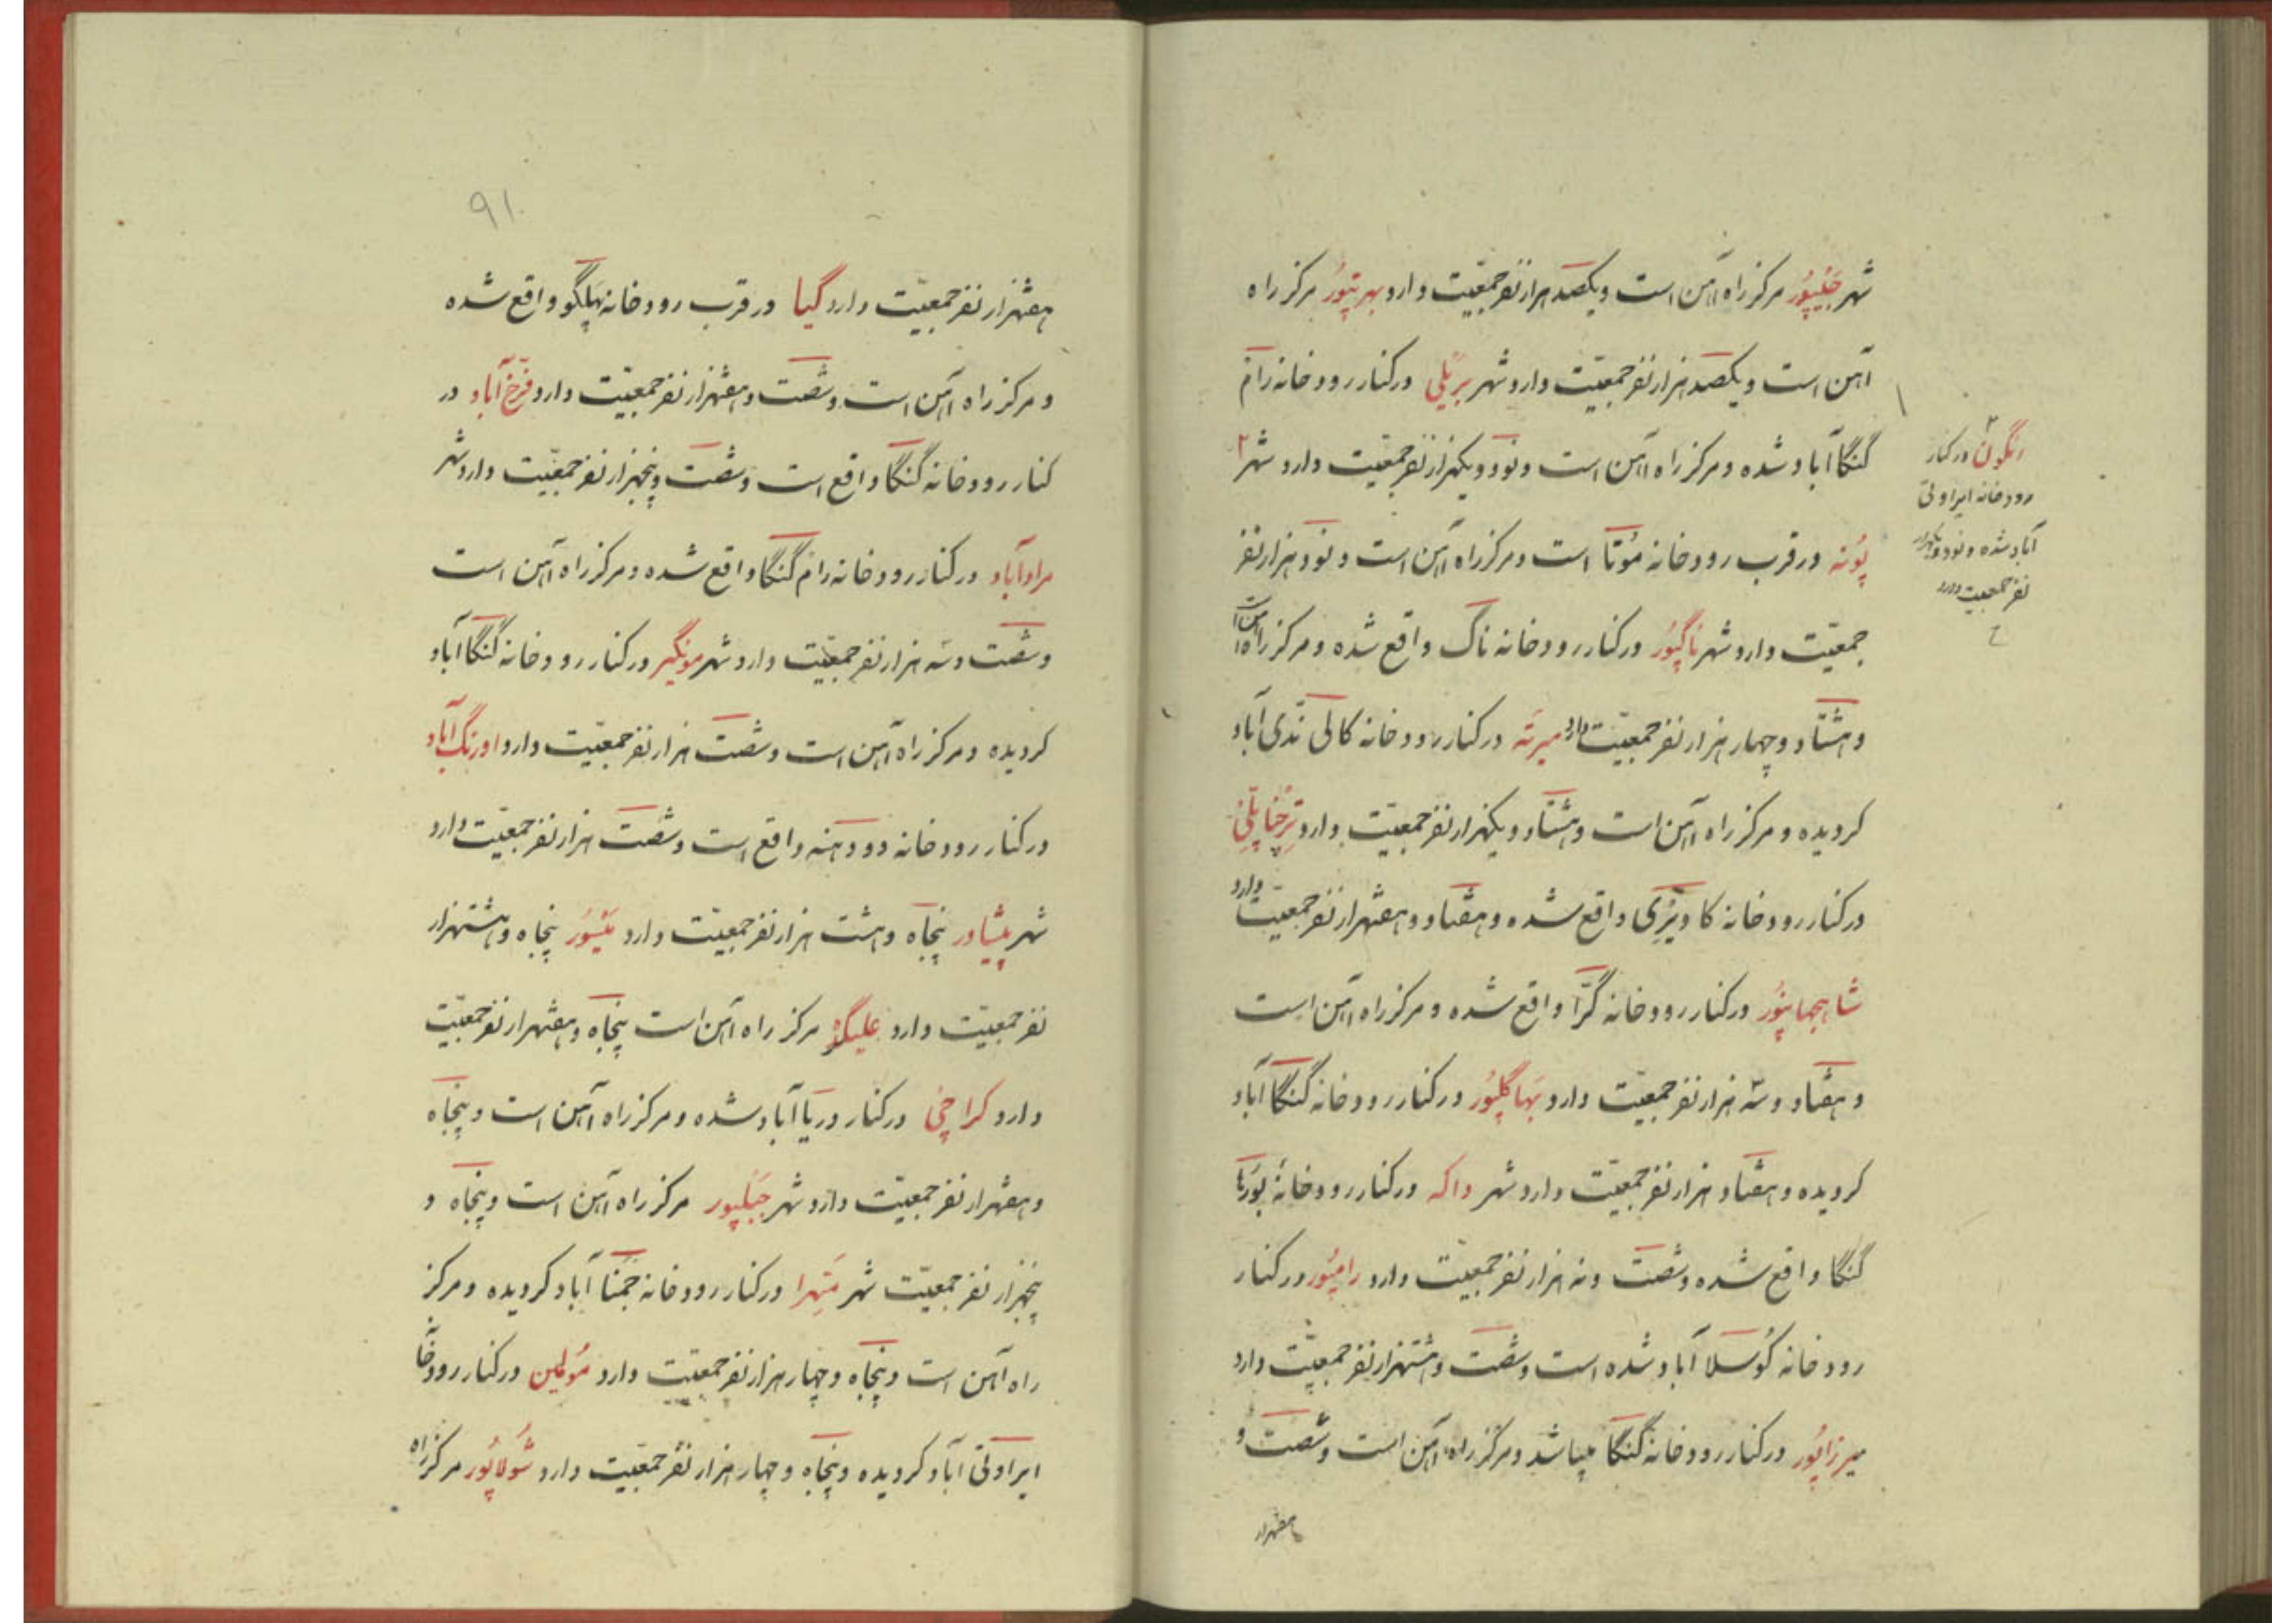 شهر جَیْپُور مرکز راه آهن است و یکصد هزار نفر جمعیّت دارد بهرتپُور مرکز راه
آهن است و یکصد هزار نفر جمعیّت دارد شهر بریلی در کنار رودخانه رام
گنگا آباد شده و مرکز راه آهن است و نود و یکهزار نفر جمعیّت دارد شهر ۲
پُونه در قرب رودخانه مُوتا است و مرکز راه آهن است و نود هزار نفر
جمعیّت دارد شهر ناگپُور در کنار رودخانه ناگ واقع شده و مرکز راه آهن است
و هشتاد و چهار هزار نفر جمعیّت دارد میرته در کنار رودخانه کالی نَدّی آباد
کردیده و مرکز راه آهن است و هشتاد و یکهزار نفر جمعیّت دارد تِرْچناپلّی
در کنار رودخانه کاویْرِی واقع شده و هفتاد و هفتهزار نفر جمعیّت دارد
شاهجهانپُور در کنار رودخانه گَرّا واقع شده و مرکز راه آهن است
و هفتاد و سه هزار نفر جمعیّت دارد بَهاگلپُور در کنار رودخانه گنگا آباد
کردیده و هفتاد هزار نفر جمعیّت دارد شهر داکه در کنار رودخانهٔ بُورْها
گنگا واقع شده و شصت و نه هزار نفر جمعیّت دارد رامپُور در کنار
رودخانه کُوسلا آباد شده است و شصت و هشتهزار نفر جمعیّت دارد
میرزاپُور در کنار رودخانه گنگا میباشد و مرکز راه آهن است و شصت و
هفتهزار
۲
رنگون در کنار
رودخانه ایراوتی
آباد شده و نود و یکهزار
نفر جمعیت دارد
۹۱
هفتهزار نفر جمعیّت دارد گیا در قرب رودخانه پهلگو واقع شده
و مرکز راه آهن است و شصت و هفتهزار نفر جمعیّت دارد فرّخ آباد در
کنار رودخانه گنگا واقع است و شصت و پنجهزار نفر جمعیّت دارد شهر
مرادآباد در کنار رودخانه رام گنگا واقع شده و مرکز راه آهن است
و شصت و سه هزار نفر جمعیّت دارد شهر مونگیر در کنار رودخانه گنگا آباد
کردیده و مرکز راه آهن است و شصت هزار نفر جمعیّت دارد اورنگ آباد
در کنار رودخانه دودهنه واقع است و شصت هزار نفر جمعیّت دارد
شهر پیشاور پنجاه و هشت هزار نفر جمعیّت دارد مَیْسُور پنجاه و هشتهزار
نفر جمعیّت دارد علیگڈه مرکز راه آهن است پنجاه و هفتهزار نفر جمعیّت
دارد کراچی در کنار دریا آباد شده و مرکز راه آهن است و پنجاه
و هفتهزار نفر جمعیّت دارد شهر جَبَلپور مرکز راه آهن است و پنجاه و
پنجهزار نفر جمعیّت شهر مَتهرا در کنار رودخانه جَمْنا آباد کردیده و مرکز
راه آهن است و پنجاه و چهار هزار نفر جمعیّت دارد مُولمین در کنار رودخانه
ایراوتی آباد کردیده و پنجاه و چهار هزار نفر جمعیّت دارد شُولاپُور مرکز راه